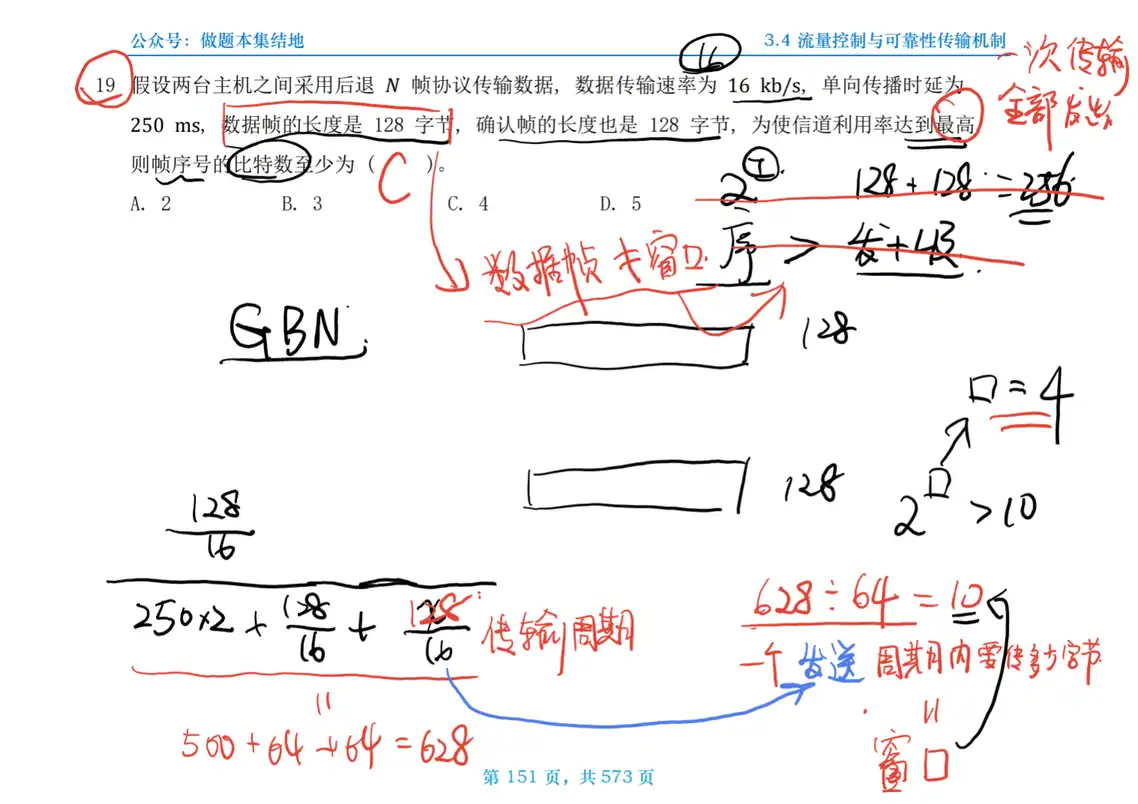 公众号：做题本集结地
3.4 流量控制与可靠性传输机制
16
一次传输
全部发出
19 假设两台主机之间采用后退 N 帧协议传输数据，数据传输速率为 16 kb/s，单向传播时延为
250 ms，数据帧的长度是 128 字节，确认帧的长度也是 128 字节，为使信道利用率达到最高
则帧序号的比特数至少为（ ）。
C
A. 2 B. 3 C. 4 D. 5
2 128 + 128 = 256
序 > 发+收
数据帧 长窗口
GBN
128
□ = 4
128
2^□ > 10
128
16
250×2 + 128/16 + 128/16 传输周期
628 ÷ 64 = 10
一个 发送 周期内要传多少字节
=
=
500 + 64 + 64 = 628
窗口
第 151 页，共 573 页